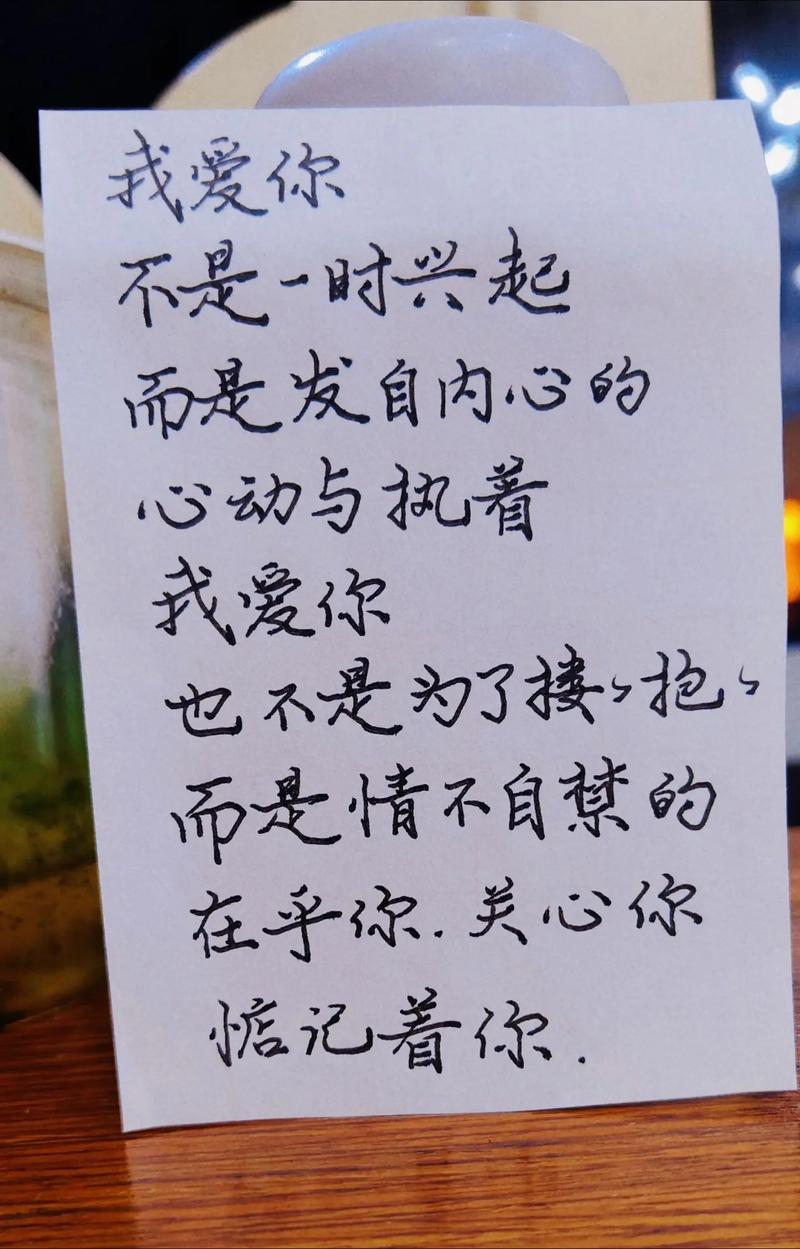 我爱你
不是一时兴起
而是发自内心的
心动与执着
我爱你
也不是为了搂々抱々
而是情不自禁的
在乎你.关心你
惦记着你.